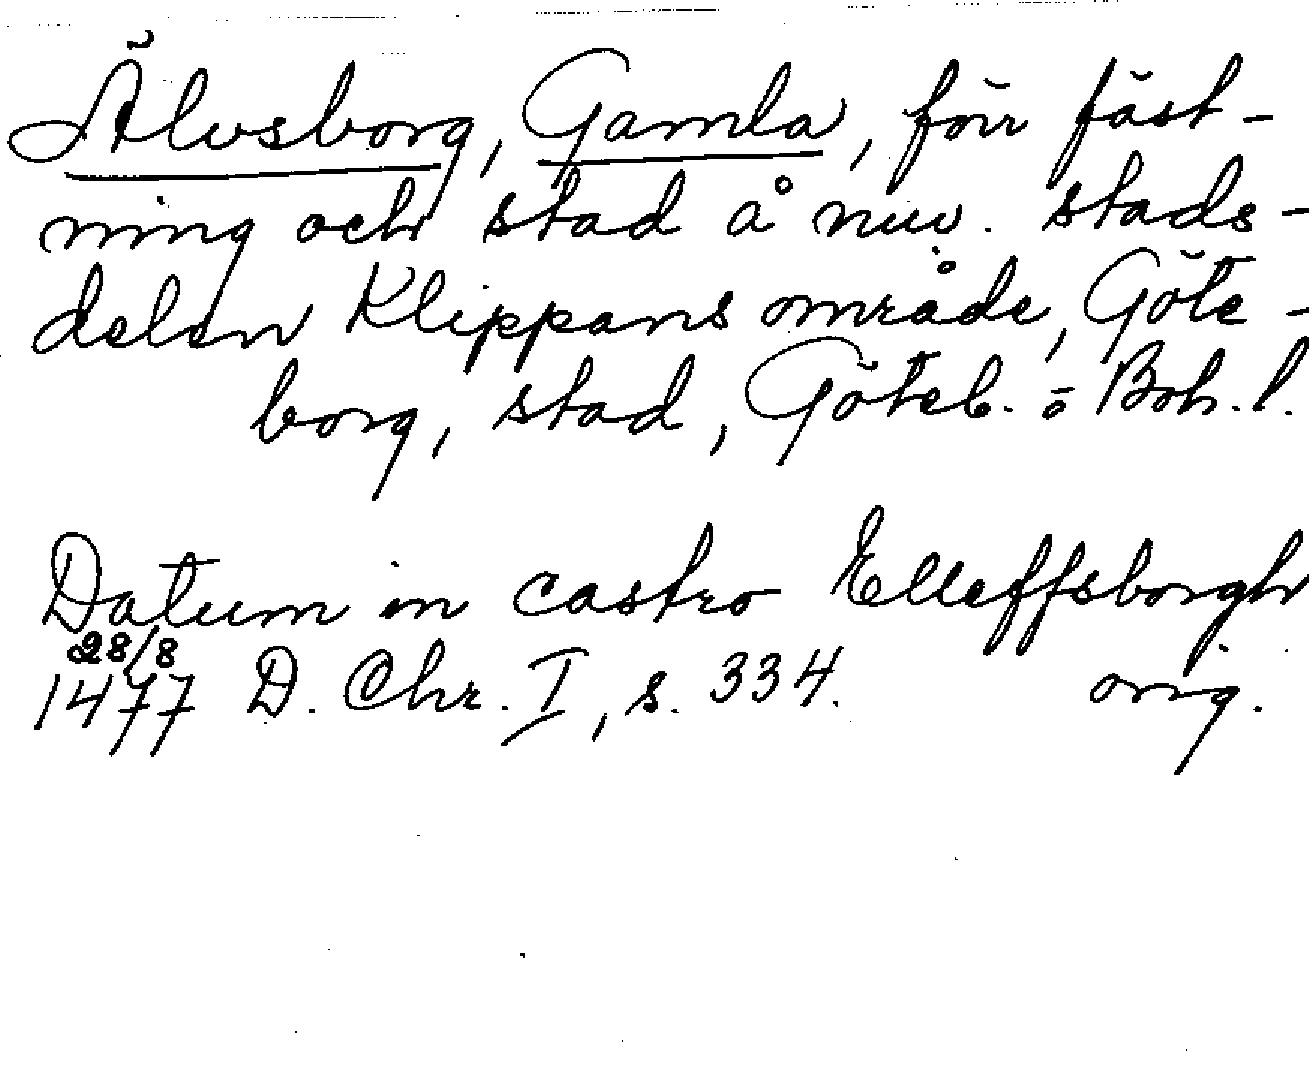 Älvsborg, Gamla, förr fäst-
ning och stad å nuv. stads-
delen Klippans område, Göte-
borg, stad, Göteb. o Boh. l.
Datum in castro Elleffsborgh
28/8
1477 D. Chr. I, s. 334. orig.